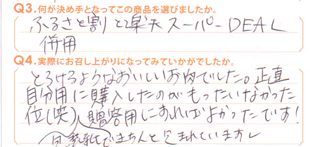 Q3.何が決め手となってこの商品を選びましたか。
ふるさと割と楽天スーパーDEAL
併用
Q4.実際にお召し上がりになってみていかがでしたか。
とろけるようなかおいしいお肉でした。正直
自分用に購入したのがもったいなかった
位(笑)贈答用にすればよかったです!
できちんと包まれていますし